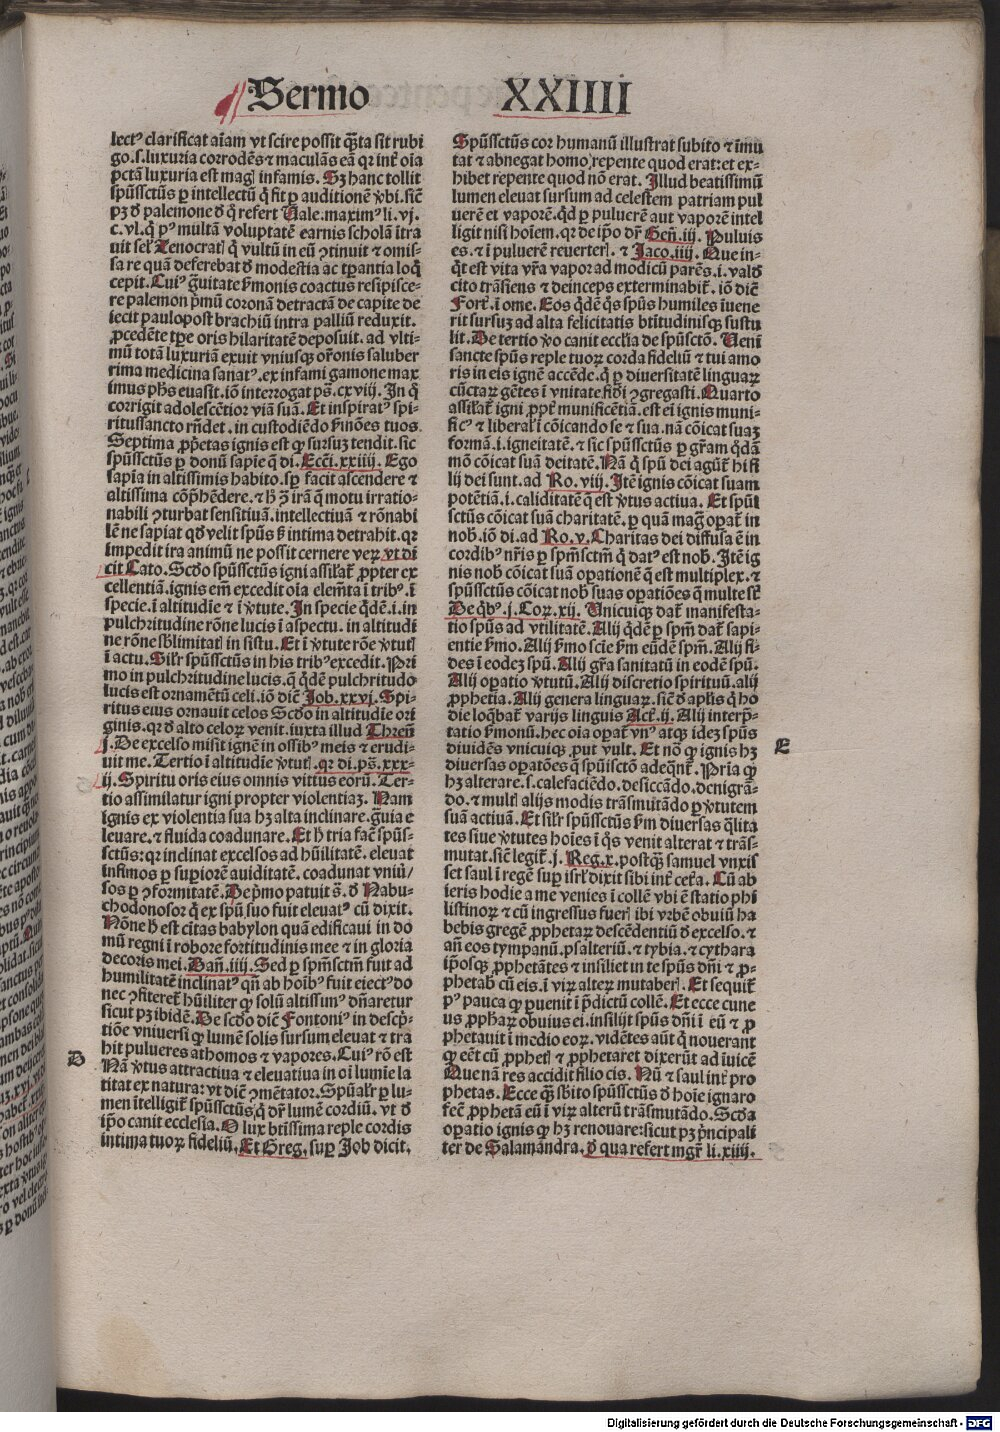 Sermo XXIIII
lectꝰ clarificat aīam vt scire possit q̄ȝta sit rubi
go.s.luxuria corrodēs ⁊ maculās eā qr int̄ oīa
pctā luxuria est magꝭ infamis. Sȝ hanc tollit
spūssctūs ꝑ intellectū q̄ fit ꝑ auditionē v̄bi. sic̄
pȝ d̄ palemone d̄ q̄ refert Uale.maximꝰ li.vj.
c.vl.q̄ pꝰ multā voluptatē earnis scholā ītra
uit ser Xenocratꝭ q̄ vultū in eū ꝯtinuit ⁊ omis-
sa re quā deferebat d̄ modestia ac tꝑantia loq̄
cepit. Cuiꝰ gͣuitate ẜmonis coactus resipisce-
re palemon pͥmū coronā detractā de capite de
iecit paulopost brachiū intra palliū reduxit.
ꝓcedēte tꝑe oris hilaritatē deposuit. ad vlti-
mū totā luxuriā exuit vniusqꝫ or̄onis saluber
rima medicina sanatꝰ.ex infami gamone max
imus ph̄s euasit.iō interrogat ps̄.cxviij. In q̄
corrigit adolescētior viā suā. Et inspiratꝰ spi-
ritussancto rn̄det.in custodiēdo ẜmōes tuos
Septima ꝓp̄etas ignis est qꝫ sursuȝ tendit.sic
spūssctūs ꝑ donū sapīe q̄ di. Ecc̄i.xxiiij. Ego
sapīa in altissimis habito.sꝑ facit ascendere ⁊
altissima cōp̄hēdere.⁊ h̄ ꝯ irā q̄ motu irratio-
nabili ꝯturbat sensitiuā.intellectiuā ⁊ rōnabi
lē ne sapiat qd̄ velit spūs ẜ intima detrahit.qr
impedit ira animū ne possit cernere veꝝ vt di
cit Cato. Scd̄o spūssctūs igni assil̄at̄ ꝓpter ex
cellentiā.ignis em̄ excedit oīa elem̄ta ī tribꝰ.ī
specie.ī altitudīe ⁊ ī v̄tute. In specie qd̄ē.i.in
pulchritudine rōne lucis ī aspectu.in altitudī
ne rōne sblimitatꝭ in sistu. Et ī v̄tute rōe v̄tutꝭ
ī actu. Silr̄ spūssctūs in his tribꝰ excedit. Pri
mo in pulchritudine lucis.q̄ qd̄ē pulchritudo
lucis est ornamētū celi.iō dic̄ Job.xxvj. Spi-
ritus eius ornauit celos Scd̄o in altitudīe ori
ginis.qr d̄ alto celoꝝ venit.iuxta illud Thren̄
j. De excelso misit ignē in ossibꝰ meis ⁊ erudi-
uit me. Tertio ī altitudīe v̄tutꝭ.qr di.ps̄.xxx-
ij. Spiritu oris eius omnis virtus eorū. Ter-
tio assimilatur igni propter violentiaȝ. Nam
ignis ex violentia sua hȝ alta inclinare.gͣuia e
leuare.⁊ fluida coadunare. Et h̄ tria fac̄ spūs-
sctūs:qr inclinat excelsos ad hūilitatē. eleuat
infimos ꝑ suꝑiorē auiditatē. coadunat vniū/
sos ꝑ ꝯformitatē. De pͥmo patuit s̄.d̄ Nabu-
chodonosor q̄ ex spū suo fuit eleuatꝰ cū dixit.
Nōne h̄ est cītas babylon quā edificaui in do
mū regni ī robore fortitudinis mee ⁊ in gloria
decoris mei. Dan̄.iiij. Sed ꝑ spm̄sctm̄ fuit ad
humilitatē inclinatꝰ qn̄ ab hoībꝰ fuit eiectꝰ do
nec ꝯfiteret̄ hūiliter qꝫ solū altissimꝰ dn̄aretur
sicut pȝ ibidē. De scd̄o dic̄ Fontoniꝰ in descp̄-
tiōe vniuersi qꝫ lumē solis sursum eleuat ⁊ tra
hit pulueres athomos ⁊ vapores. Cuiꝰ rō est
D
Nā v̄tus attractiua ⁊ eleuatiua in oī lumīe la
titat ex natura: vt dic̄ ꝯmētator. Spūalr̄ ꝑ lu-
men ītelligit̄ spūssctūs q̄ dr̄ lumē cordiū.vt d̄
ip̄o canit ecclesia. O lux btīssima reple cordis
intima tuoꝝ fideliū. Et Greg.suꝑ Job dicit.
Spūssctūs cor humanū illustrat subito ⁊ īmu
tat ⁊ abnegat homo repente quod erat:et ex-
hibet repente quod nō erat. Illud beatissimū
lumen eleuat sursum ad celestem patriam pul
uerē et vaporē.qd̄ ꝑ puluerē aut vaporē intel
ligit nisi hoīem.qr de ip̄o dr̄ Gen̄.iij. Puluis
es.⁊ ī puluerē reuerterꝭ. ⁊ Jaco.iiij. Que in-
q̄t est vita vr̄a vapor ad modicū parēs.i.vald̄
cito trāsiens ⁊ deinceps exterminabit̄.iō dic̄
Fort̄.ī ome. Eos qd̄ē q̄s spūs humiles īuene
rit sursuȝ ad alta felicitatis btītudinisqꝫ sustu
lit. De tertio v̄o canit eccl̄ia de spūsctō. Ueni
sancte spūs reple tuoꝝ corda fideliū ⁊ tui amo
ris in eis ignē accēde.q̄ ꝑ diuersitatē linguaꝝ
cūctaꝝ gētes ī vnitate fid̄i ꝯgregasti. Quarto
assil̄at̄ igni ꝓpt̄ munificētiā.est ei ignis muni-
ficꝰ ⁊ liberalꝭ ī cōicando se ⁊ sua.nā cōicat suaȝ
formā.i.igneitatē.⁊ sic spūssctūs ꝑ gr̄am qd̄ā
mō cōicat suā deitatē. Nā q̄ spū dei agūt̄ hi fi
lij dei sunt.ad Ro.viij. Itē ignis cōicat suam
potētiā.i.caliditatē q̄ est v̄tus actiua. Et spūs
sctūs cōicat suā charitatē.ꝑ quā mag oꝑat̄ in
nob̄.iō di.ad Ro.v. Charitas dei diffusa ē in
cordibꝰ nr̄is ꝑ spm̄sctm̄ q̄ datꝰ est nob̄. Itē ig
nis nob̄ cōicat suā oꝑationē q̄ est multiplex.⁊
spūssctūs cōicat nob̄ suas oꝑatiōes q̄ multe st̄
De q̄bꝰ.j.Coꝝ.xij. Unicuiqꝫ dat̄ manifesta-
tio spūs ad vtilitatē. Alij qd̄ē ꝑ spm̄ dat̄ sapi-
entie ẜmo. Alij ẜmo scīe ẜm eūdē spm̄. Alij fi-
des ī eodeȝ spū. Alij gr̄a sanitatū in eodē spū.
Alij oꝑatio v̄tutū. Alij discretio spirituū.alij
ꝓphetia. Alij genera linguaꝝ.sic̄ d̄ apl̄is q̄ ho
die loq̄bat̄ varijs linguis Act̄.ij. Alij interp̄-
tatio ẜmonū.hec oīa oꝑat̄ vnꝰ atqꝫ ideȝ spūs
diuidēs vnicuiqꝫ ꝓut vult. Et nō qꝫ ignis hȝ
E
diuersas oꝑatōes q̄ spūisctō adeq̄nt̄. Prīa qꝫ
hȝ alterare.s.calefaciēdo.desiccādo.denigrā-
do.⁊ multꝭ alijs modis trāsmutādo ꝑ v̄tutem
suā actiuā. Et silr̄ spūssctūs ẜm diuersas q̄lita
tes siue v̄tutes hoīes ī q̄s venit alterat ⁊ trās-
mutat.sic̄ legit̄.j. Reg.x.postqȝ samuel vnxis
set saul ī regē suꝑ isrl̄ dixit sibi int̄ cet̄a. Cū ab
ieris hodie a me venies ī collē vbi ē statio phi
listinoꝝ ⁊ cū ingressus fuerꝭ ibi vrbē obuiū ha
bebis gregē ꝓphetaꝝ descēdentiū d̄ excelso.⁊
an̄ eos tympanū.psalteriū.⁊ tybia.⁊ cythara
ip̄osqꝫ ꝓphetātes ⁊ insiliet in te spūs dn̄i ⁊ ꝓ-
phetab̄ cū eis.ī viꝝ alteꝝ mutaberꝭ. Et sequit̄
pꝰ pauca qꝫ ꝑuenit ī p̄dictū collē. Et ecce cune
us ꝓph̄aꝝ obuius ei.insilijt spūs dn̄i ī eū ⁊ ꝓ
phetauit ī medio eoꝝ.vidētes aūt q̄ nouerant
qꝫ eēt cū ꝓphetꝭ ⁊ ꝓphetaret dixerūt ad īuicē
Que nā res accidit filio cis. Nū ⁊ saul int̄ pro
phetas. Ecce qꝫ sb̄ito spūssctūs d̄ hoīe ignaro
fec̄ ꝓphetā eū ī viꝝ alterū trāsmutādo. Scd̄a
oꝑatio ignis qꝫ hȝ renouare:sicut pȝ pͥncipali
ter de Salamandra.d̄ qua refert mgr̄ li.xiiij.
Digitalisierung gefördert durch die Deutsche Forschungsgemeinschaft - DFG